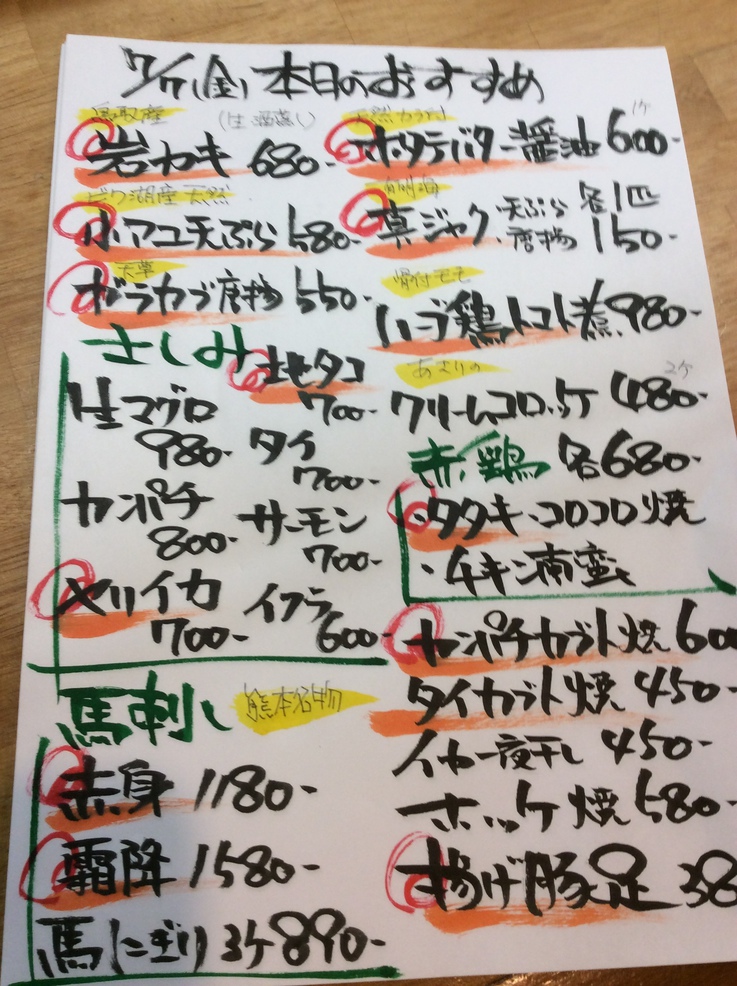 7/7(金)本日のおすすめ
鳥取産 (生 酒蒸し)
岩カキ 680-
ビワ湖産 天然
小アユ天ぷら 580-
天草
ガラカブ唐揚 550-
さしみ
地タコ
700-
生マグロ
980-
タイ
700-
カンパチ
800-
サーモン
700-
ヤリイカ
700-
イクラ
600-
馬刺し 熊本名物
赤身 1180-
霜降 1580-
馬(にぎり)3ケ890-
天然カラ付 1ケ
ホタテバター醤油 600-
有明海
真ジャク 天ぷら 各1匹
唐揚 150-
骨付モモ
ハーブ鶏トマト煮 980-
あさりの 2ケ
クリームコロッケ 480-
赤鶏 各680-
・タタキ・コロコロ焼
・チキン南蛮
カンパチカブト焼 600
タイカブト焼 450-
イカ一夜干し 450-
ホッケ焼 580-
揚げ豚足 38